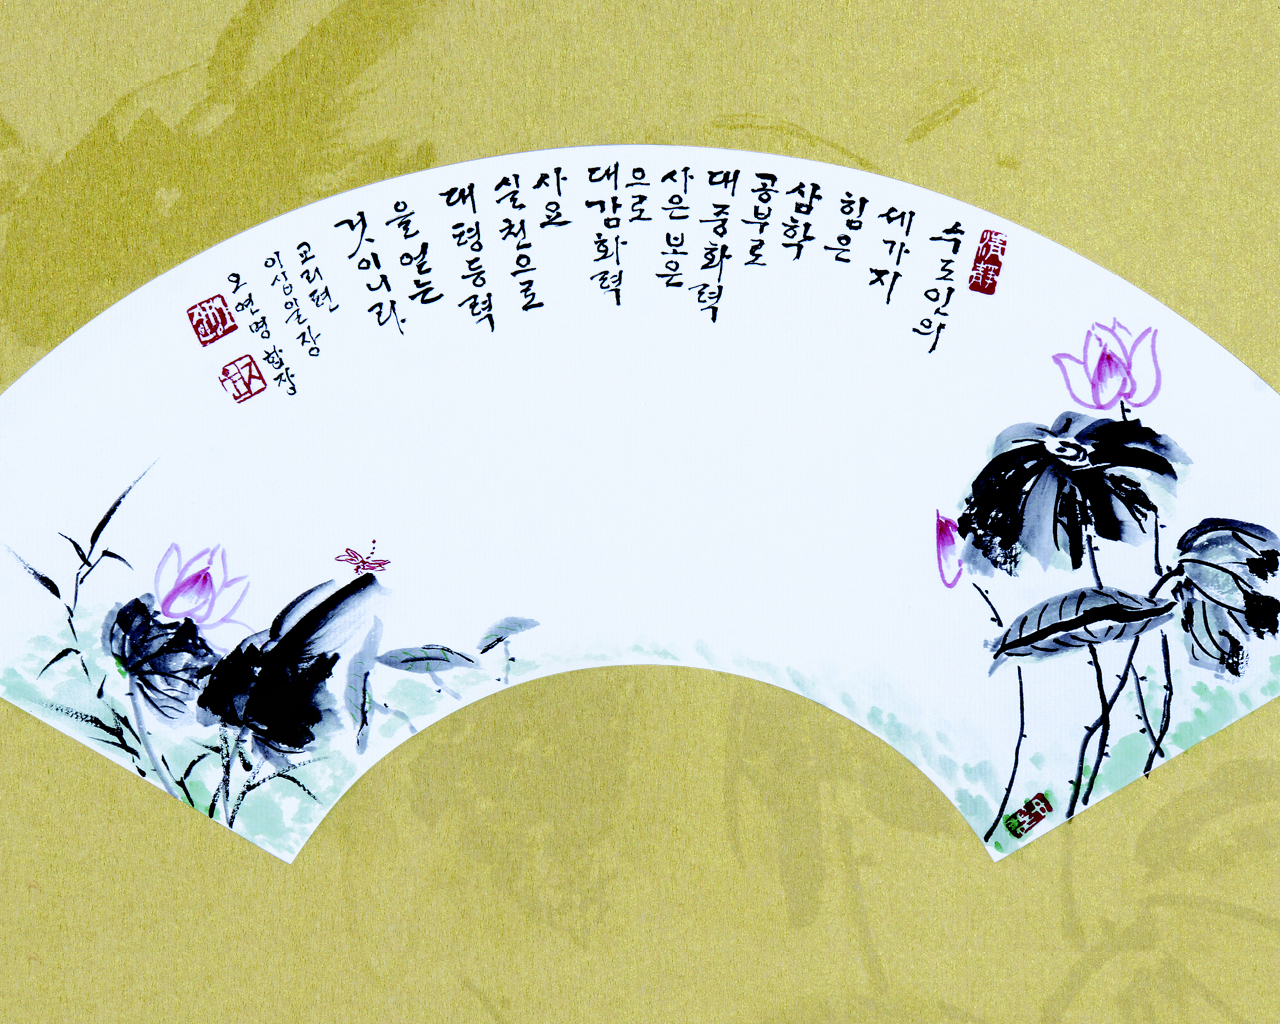 清靜
수도인의
세가지
힘은
삼학
공부로
대중화력
사은보은
으로
대감화력
사요
실천으로
대평등력
을얻는
것이니라.
교리편
오연명 합장